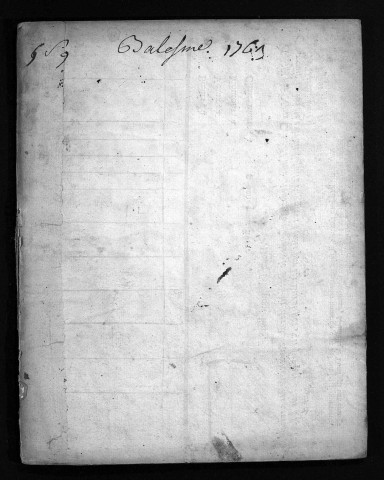 559 Balesme. 1763